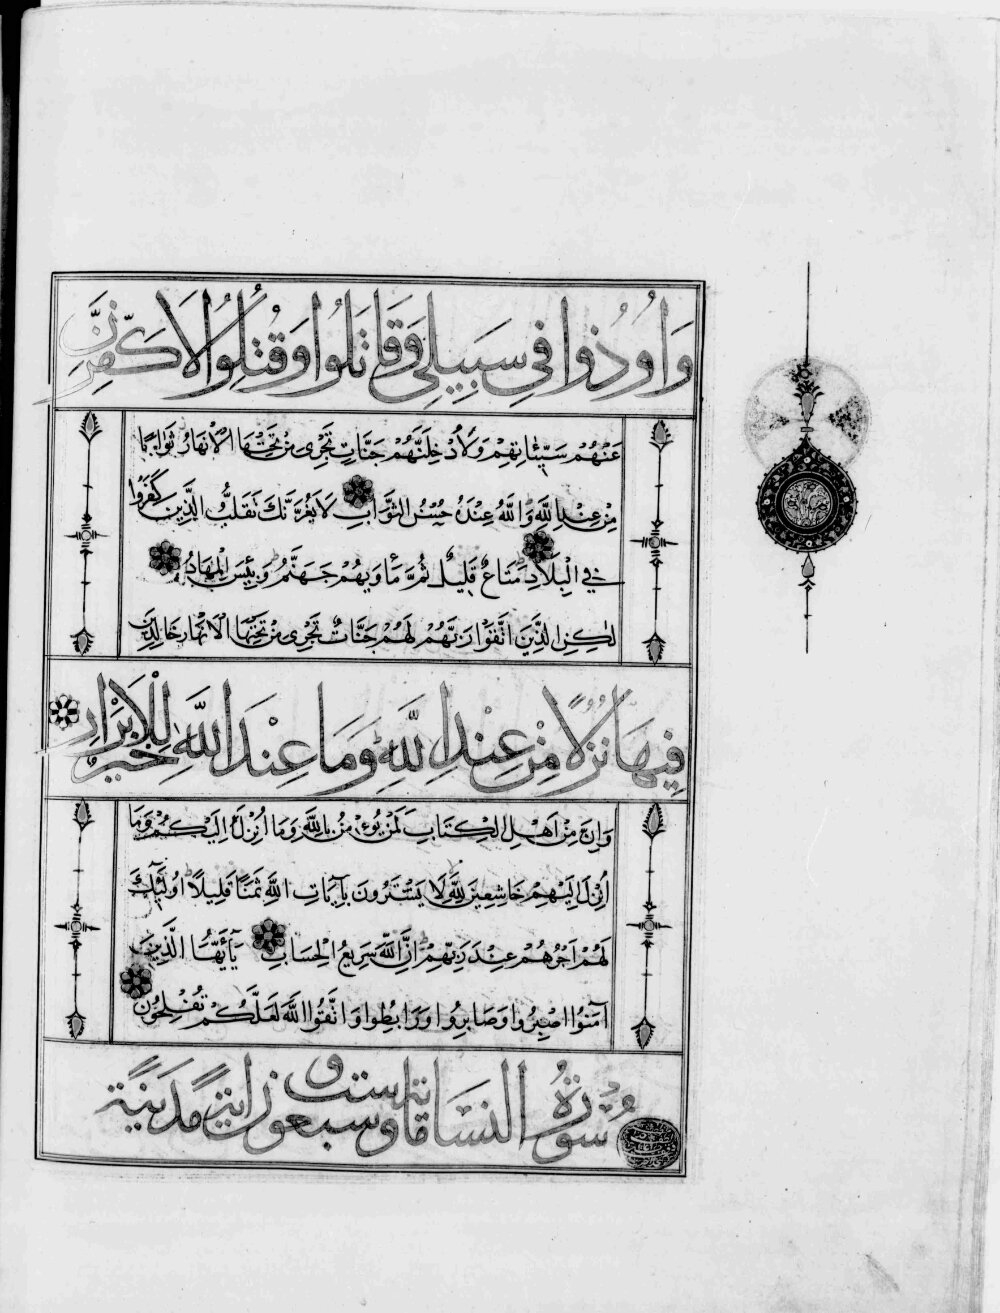 وَاُوذُوا فِي سَبِيلِي وَقَاتَلُوا وَقُتِلُوا لَاُكَفِّرَنَّ
عَنْهُمْ سَيِّئَاتِهِمْ وَلَأُدْخِلَنَّهُمْ جَنَّاتٍ تَجْرِي مِنْ تَحْتِهَا الْاَنْهَارُ ثَوَابًا
مِنْ عِنْدِ اللَّهِ وَاللَّهُ عِنْدَهُ حُسْنُ الثَّوَابِ لَا يَغُرَّنَّكَ تَقَلُّبُ الَّذِينَ كَفَرُوا
فِي الْبِلَادِ مَتَاعٌ قَلِيلٌ ثُمَّ مَأْوَيهُمْ جَهَنَّمُ وَبِئْسَ الْمِهَادُ
لٰكِنِ الَّذِينَ اتَّقَوْا رَبَّهُمْ لَهُمْ جَنَّاتٌ تَجْرِي مِنْ تَحْتِهَا الْاَنْهَارُ خَالِدِينَ
فِيهَا نُزُلًا مِنْ عِنْدِ اللَّهِ وَمَا عِنْدَ اللَّهِ خَيْرٌ لِلْاَبْرَارِ
وَاِنَّ مِنْ اَهْلِ الْكِتَابِ لَمَنْ يُؤْمِنُ بِاللَّهِ وَمَا اُنْزِلَ اِلَيْكُمْ وَمَا
اُنْزِلَ اِلَيْهِمْ خَاشِعِينَ لِلَّهِ لَا يَشْتَرُونَ بِآيَاتِ اللَّهِ ثَمَنًا قَلِيلًا اُولَئِكَ
لَهُمْ اَجْرُهُمْ عِنْدَ رَبِّهِمْ اِنَّ اللَّهَ سَرِيعُ الْحِسَابِ يَآ أَيُّهَا الَّذِينَ
آمَنُوا اصْبِرُوا وَصَابِرُوا وَرَابِطُوا وَاتَّقُوا اللَّهَ لَعَلَّكُمْ تُفْلِحُونَ
سُورَةُ النساء مائة وست وسبعون اية مدنية